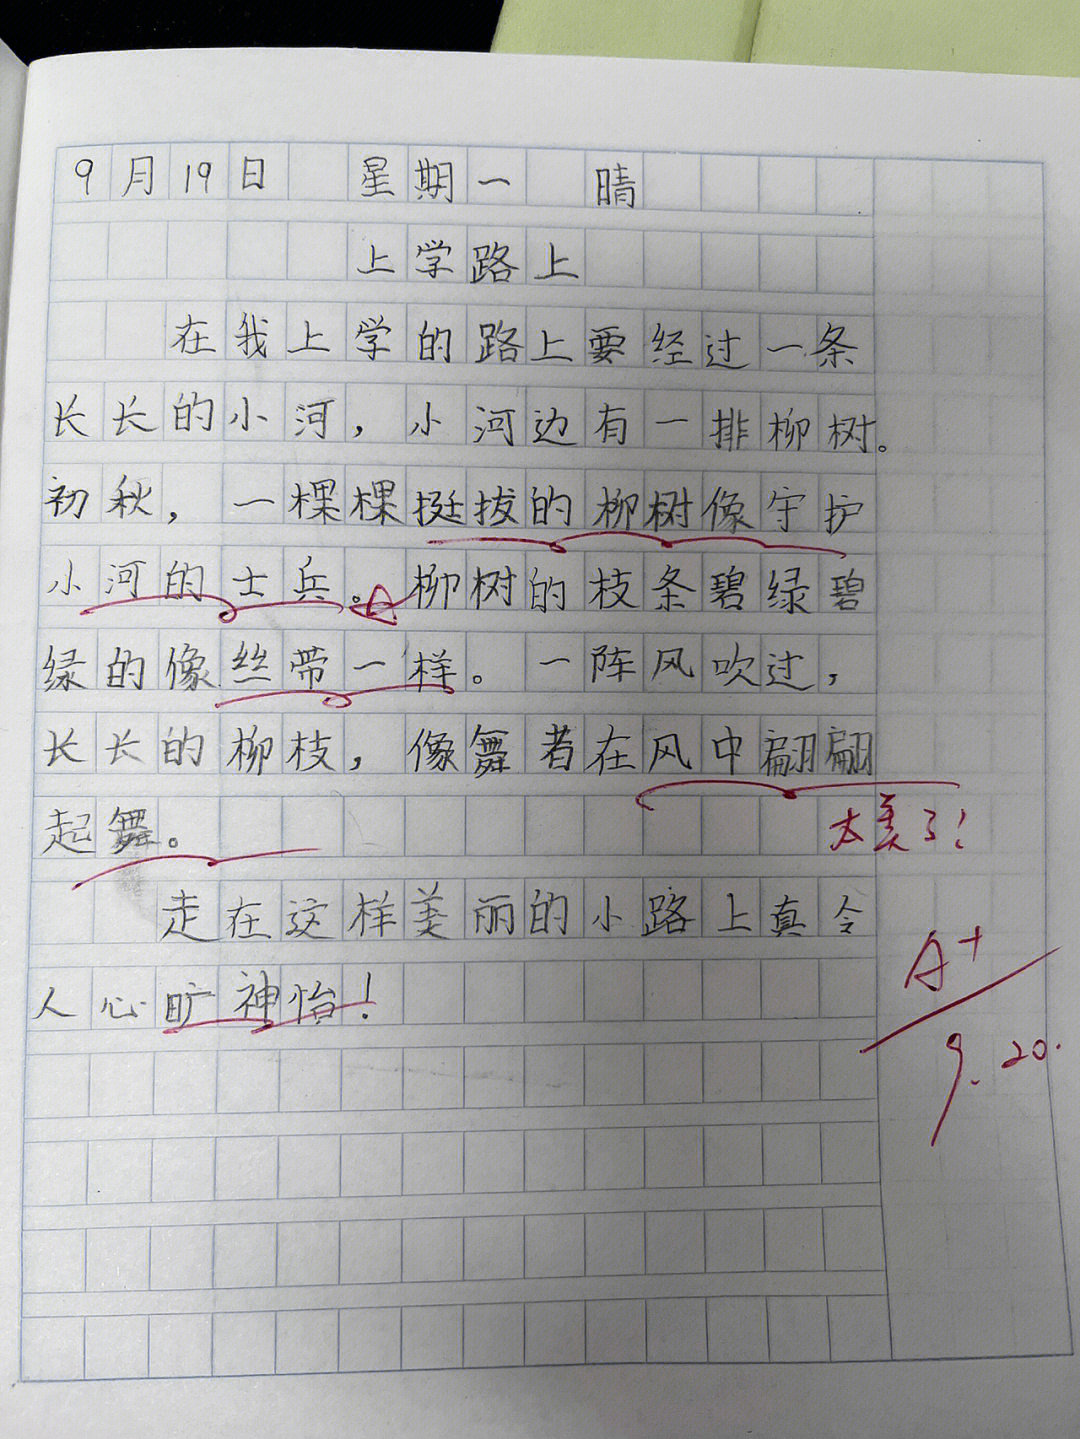 9月19日 星期一 晴
上学路上
在我上学的路上要经过一条
长长的小河，小河边有一排柳树。
初秋，一棵棵挺拔的柳树像守护
小河的士兵。柳树的枝条碧绿碧
绿的像丝带一样。一阵风吹过，
长长的柳枝，像舞者在风中翩翩
起舞。
太美了！
走在这样美丽的小路上真令
人心旷神怡！
A+
9.20.